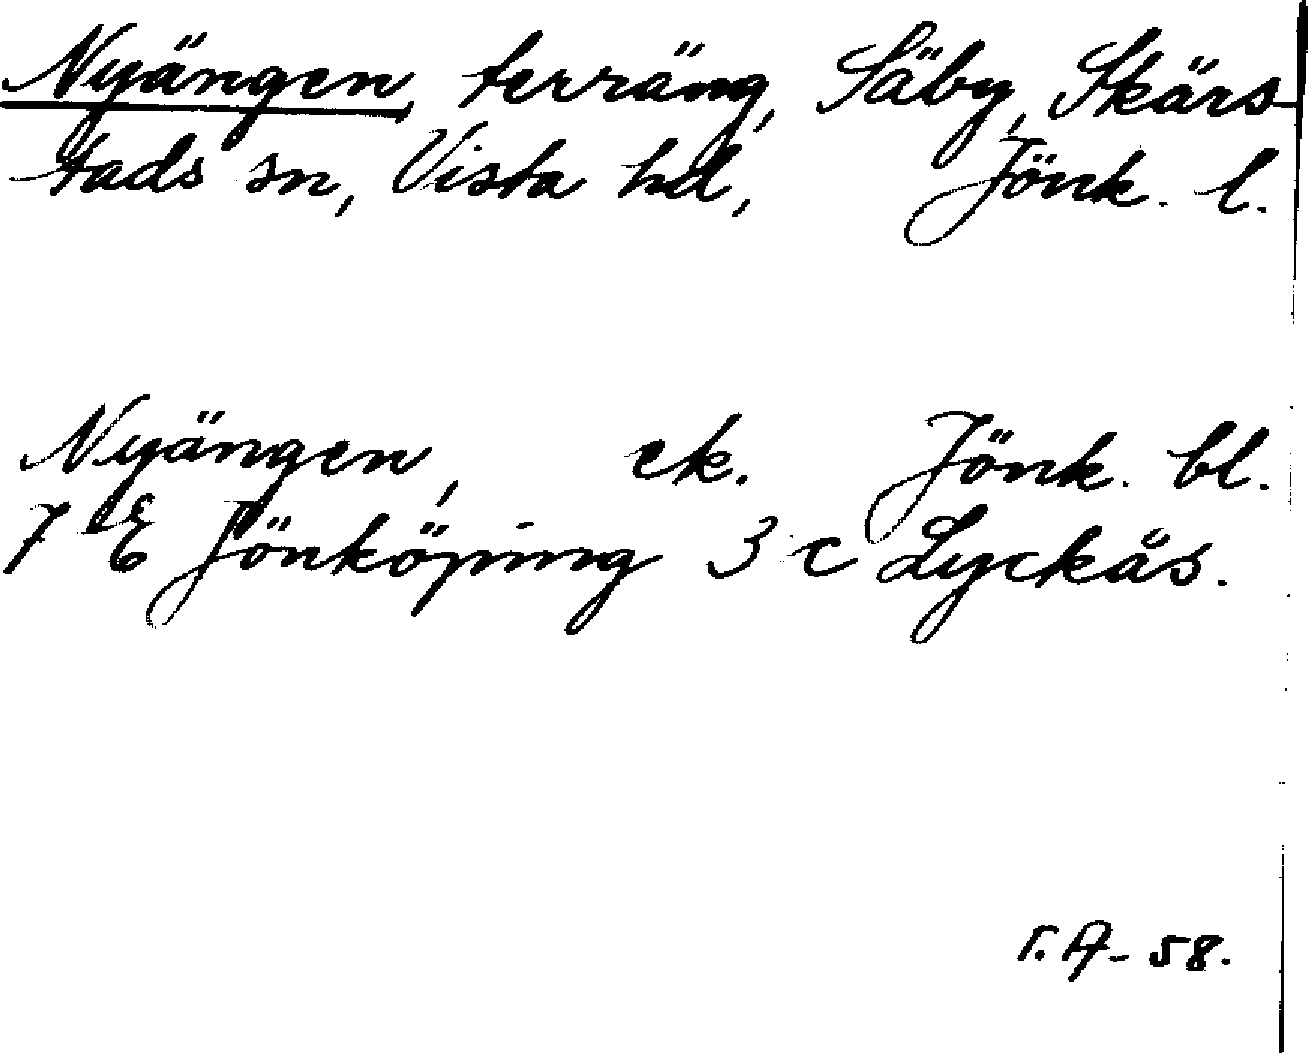 Nyängen, terräng, Säby, Skärs-
tads sn, Vista hd, Jönk. l.
Nyängen, ek. Jönk. bl.
7 E Jönköping 3 c Lyckås.
r. A- 58.